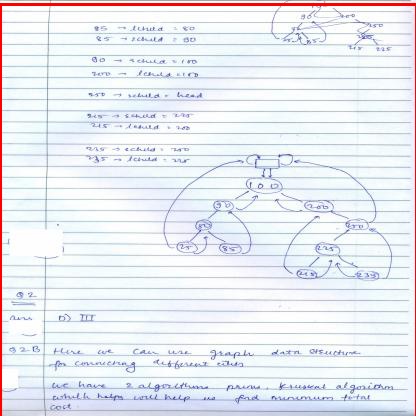 90 200
80 250
25 85 225
215 225
85 → lchild = 80
85 → rchild = 90
90 → rchild = 100
200 → lchild = 100
250 → rchild = head
215 → rchild = 225
215 → lchild = 200
235 → rchild = 250
235 → lchild = 225
100
90 200
80 250
25 85 225
215 235
Q2
Ans D) III
Q2B Here we can use graph data structure
for connecting different cities
we have 2 algorithms prims, kruskal algorithm
which helps will help us find minimum total
cost.